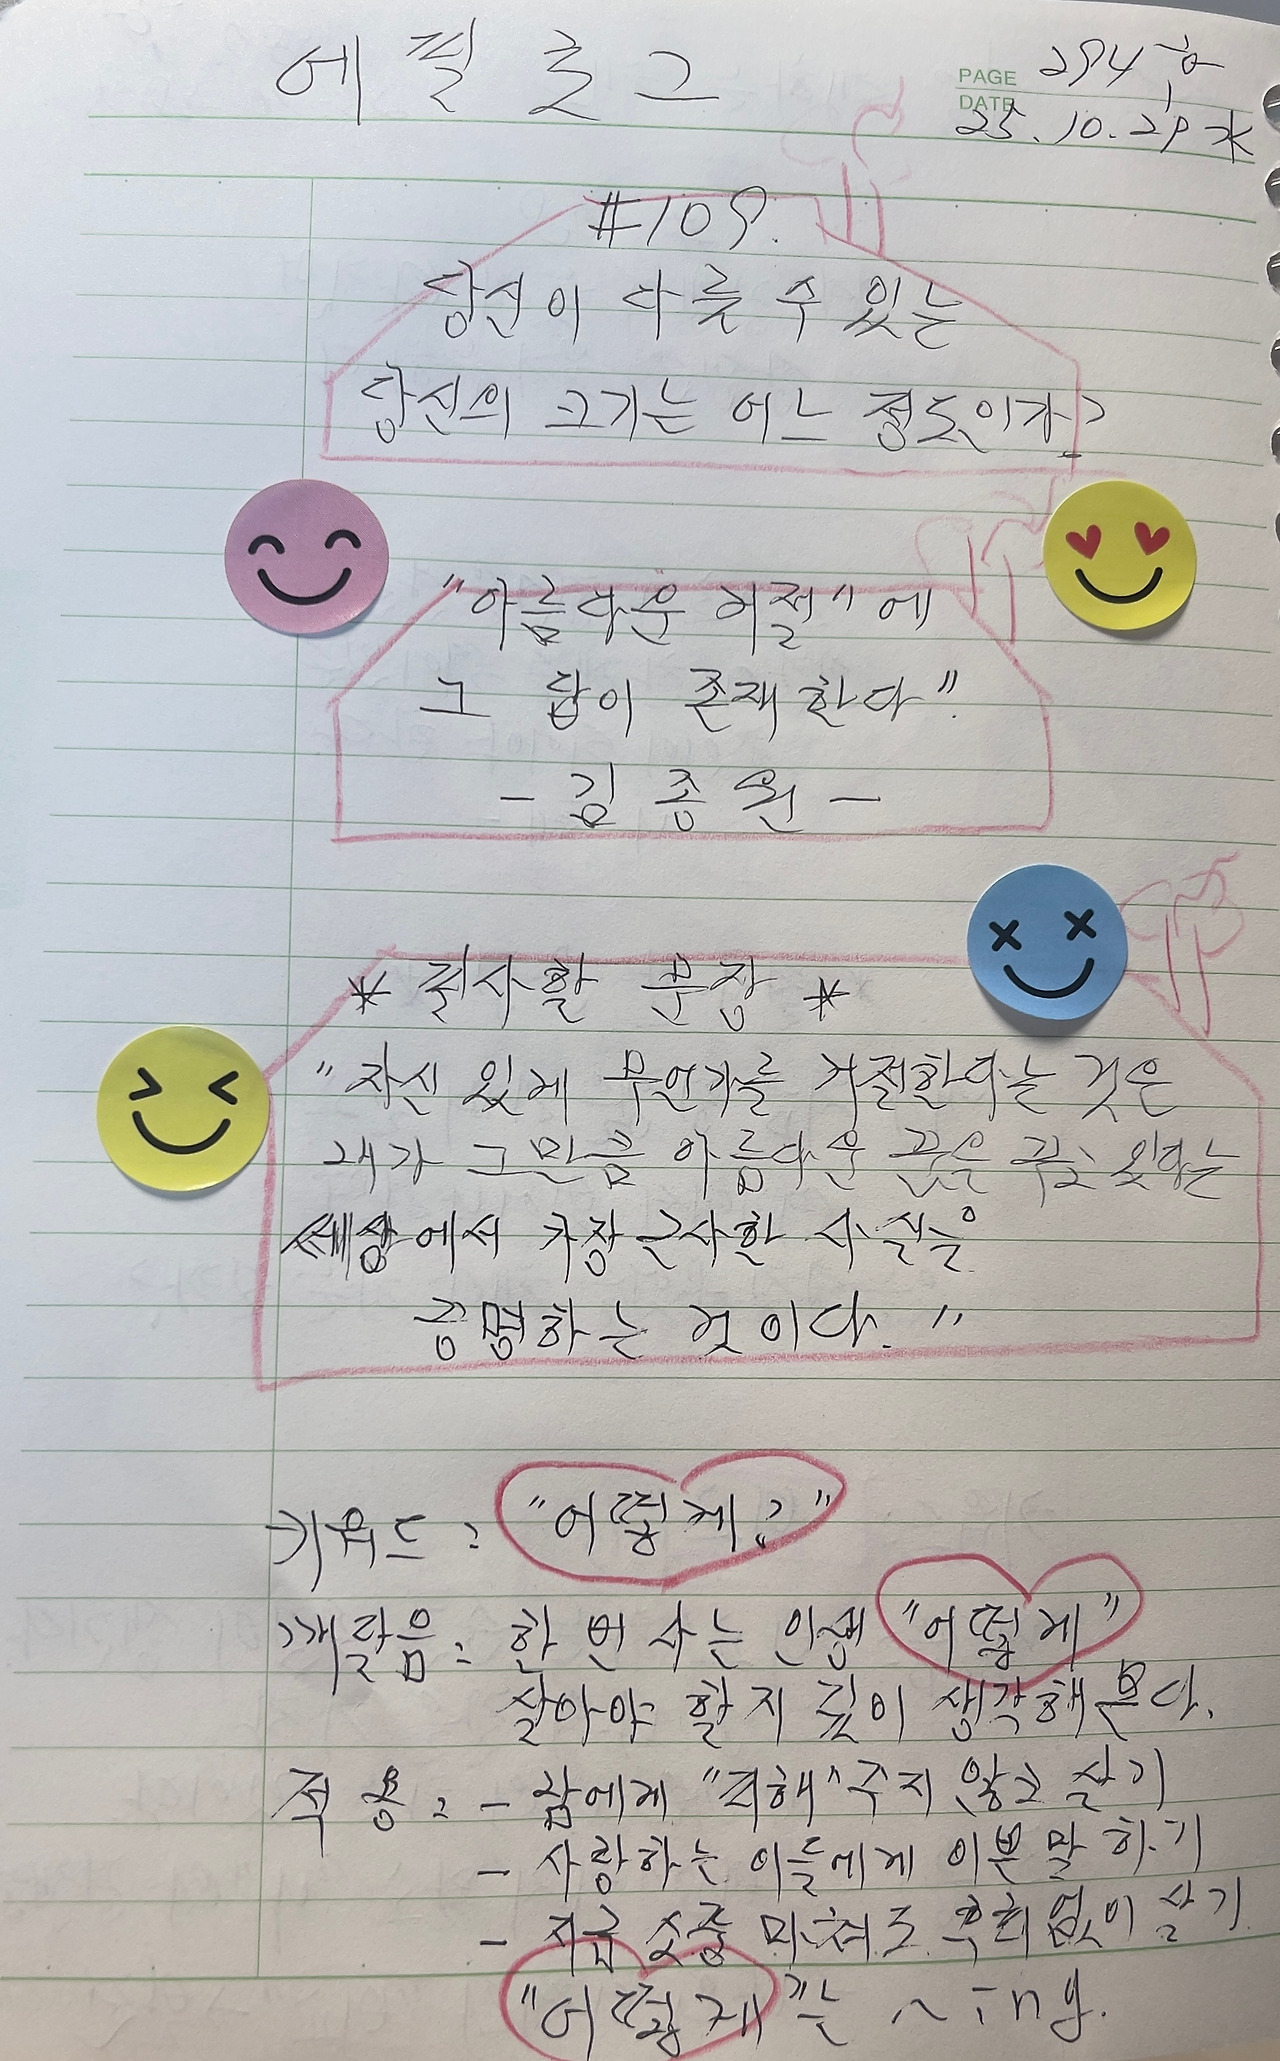 에필로그
PAGE 294쪽
DATE 25.10.29 水
#109.
당신이 다룰 수 있는
당신의 크기는 어느 정도인가?
"아름다운 거절"에
그 답이 존재한다".
- 김종원 -
* 필사할 문장 *
"자신 있게 무언가를 거절한다는 것은
내가 그만큼 아름다운 꿈을 꾸고 있다는
세상에서 가장 근사한 사실을
증명하는 것이다."
키워드: "어떻게?"
깨달음: 한 번 사는 인생 "어떻게"
살아야 할지 깊이 생각해본다.
적용: - 남에게 "피해" 주지 않고 살기
- 사랑하는 이들에게 이쁜 말 하기
- 지금 소중 미쳐도 후회없이 살기
"어떻게"는 ~ing.